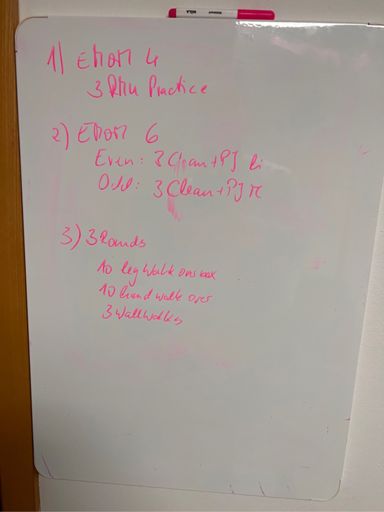 1) EMOM 4
3 RMU Practice
2) EMOM 6
Even: 3 Clean + PJ li
Odd: 3 Clean + PJ re
3) 3 Rounds
10 leg walk ons box
10 hand walk over
3 Wallwalks